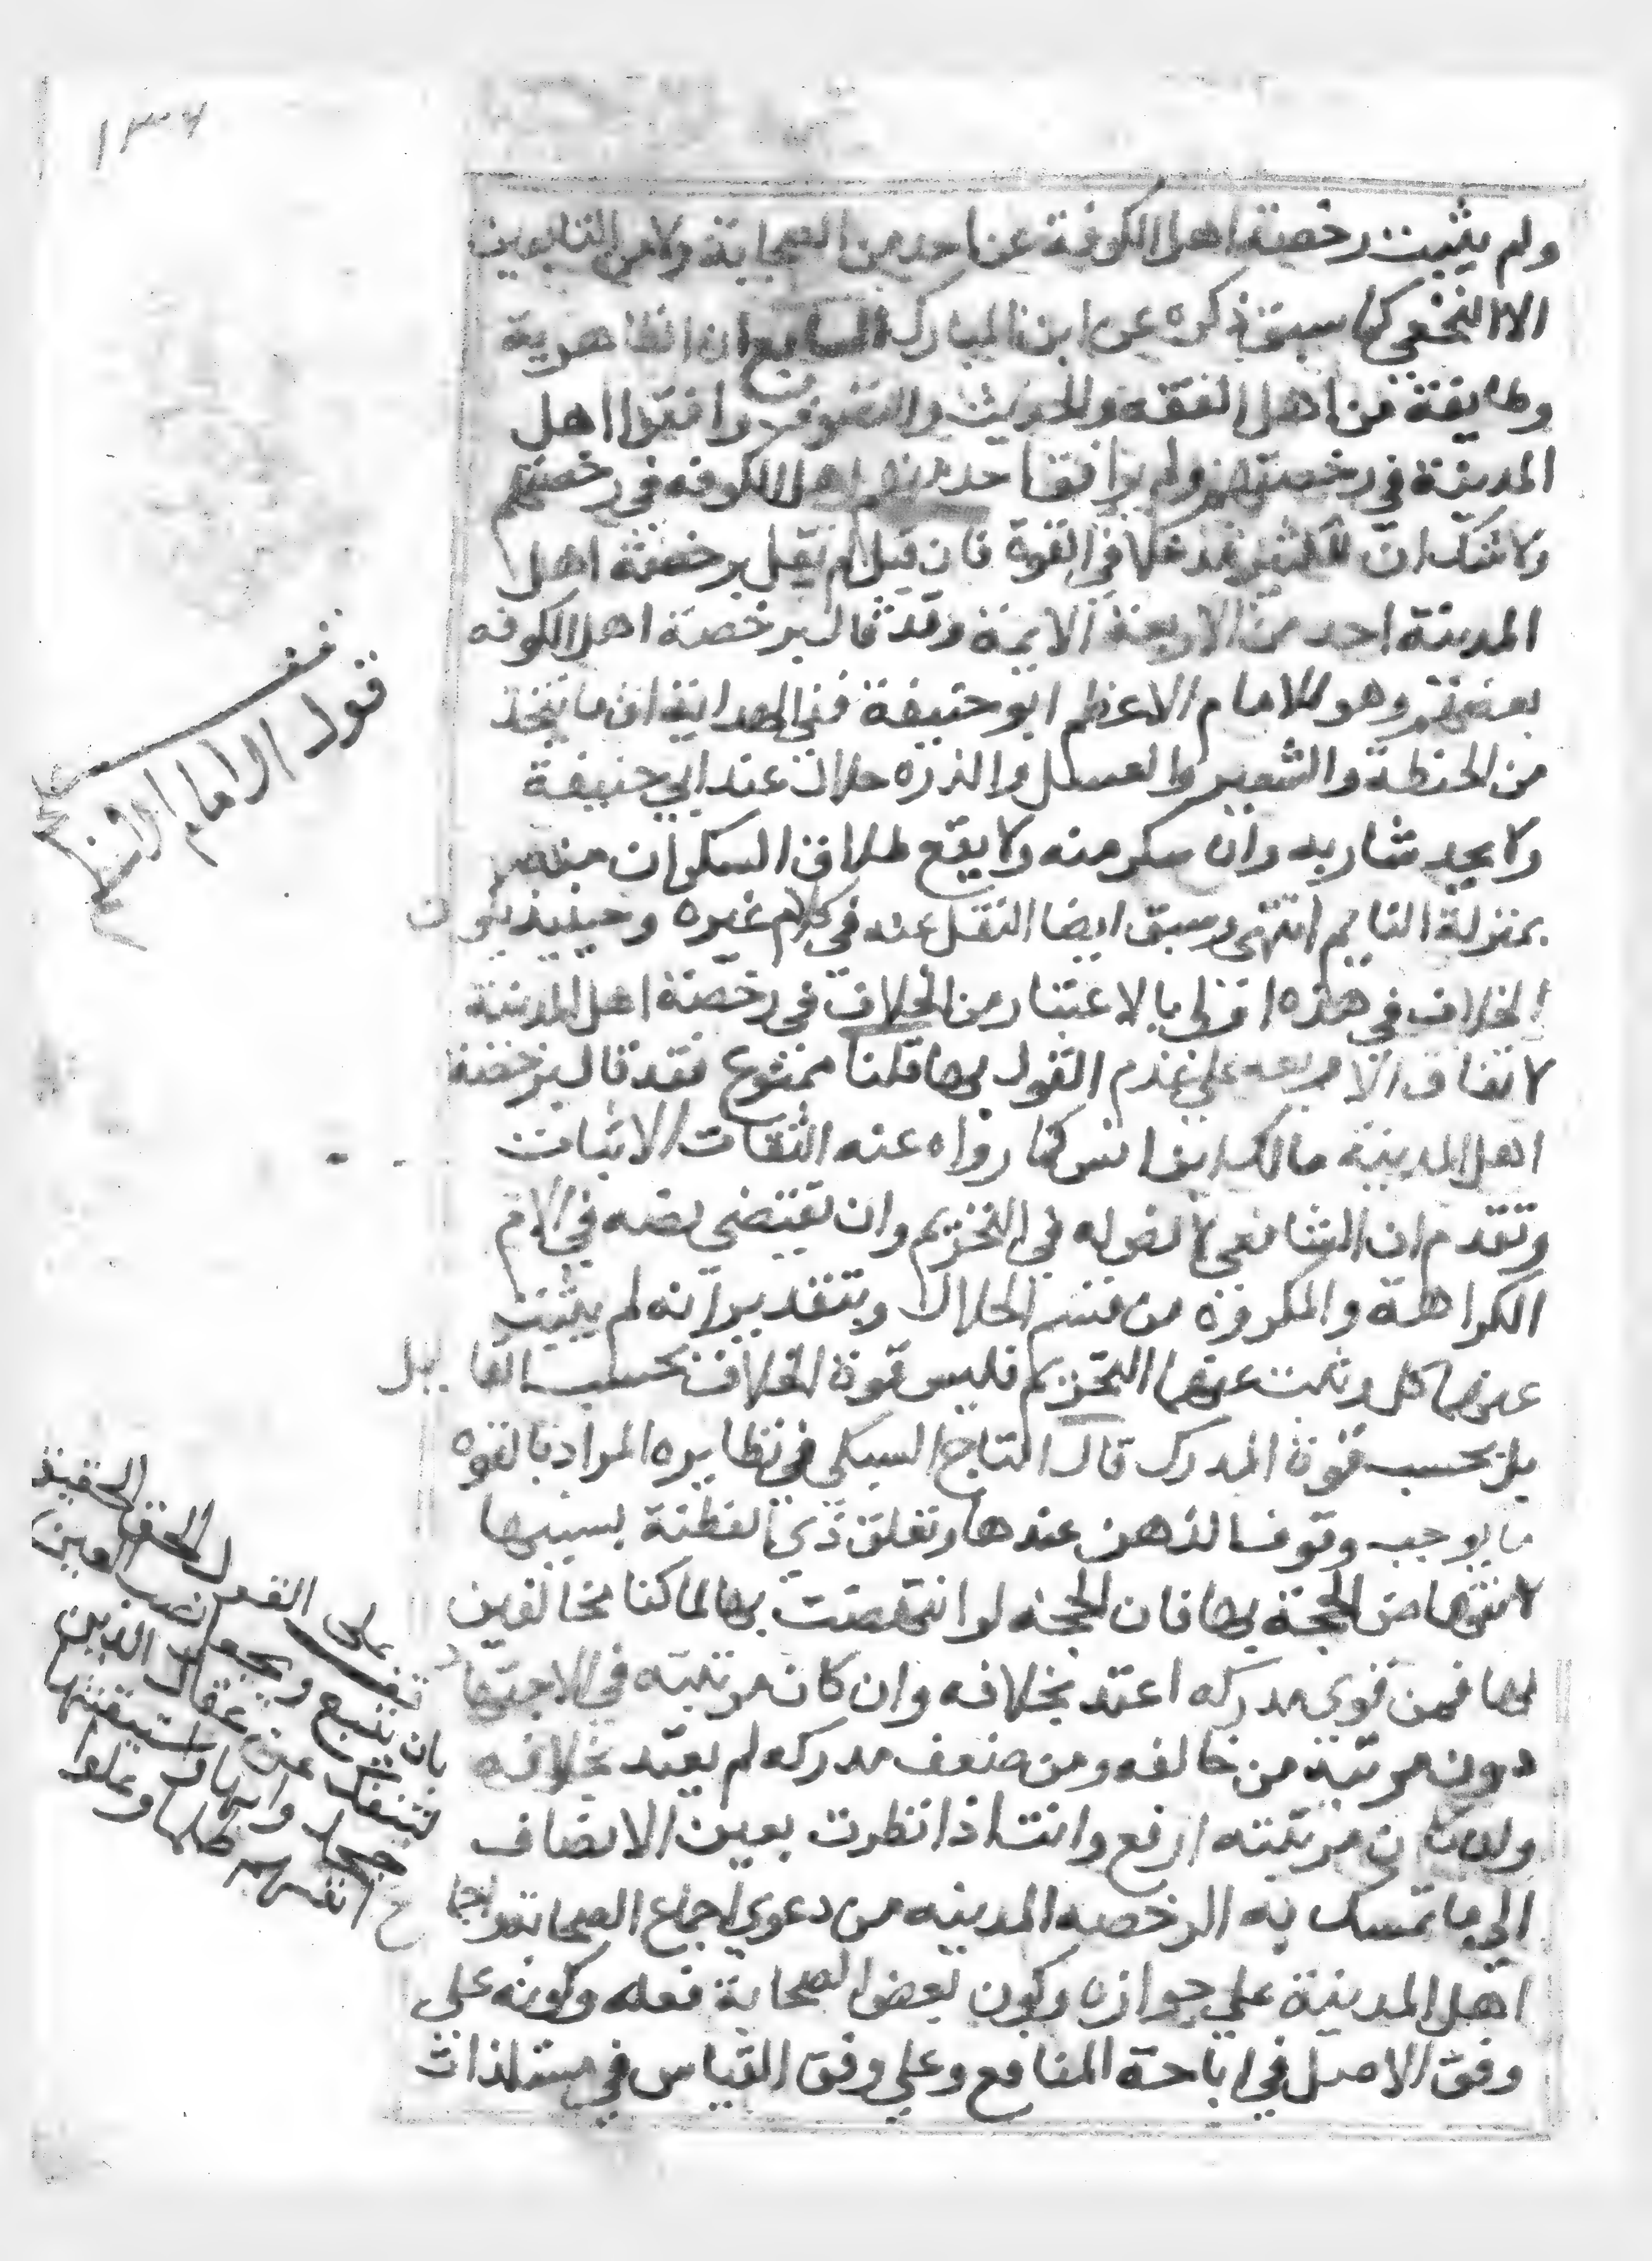 ١٣٦
ولم يثبت رخصة اهل الكوفة عن احد من الصحابة ولا من التابعين
الا النخعي كما سبق ذكره عن ابن المبارك السابع ان الظاهرية
وطايفة من اهل الفقه والحديث والتصوف وافقوا اهل
المدينة في رخصتهم ولم يوافق احد منهم اهل الكوفه في رخصتهم
ولا شك ان للكثير مدخلا في القوة فان قيل لم يقل برخصة اهل
المدينة احد من الاربعة الايمة وقد قال برخصة اهل الكوفه
بعضهم وهو الامام الاعظم ابو حنيفة ففي الهداية ان ما يتخذ
من الحنطة والشعير والعسل والذرة حلال عند ابي حنيفة
ولا يحد شاربه وان سكر منه ولا يقع طلاق السكران منه
بمنزلة النايم انتهى وسبق ايضا النقل عنه في كلام غيره وحينيذ يكون
الخلاف في هذه اولى بالاعتبار من الخلاف في رخصة اهل المدينة
لاتفاق الاربعه على عدم القول بها قلنا ممنوع فقد قال برخصة
اهل المدينة مالك ابن انس كما رواه عنه الثقات الاثبات
وتقدم ان الشافعي لا نص له في التحريم وان نقتضي نصه في الام
الكراهة والمكروه من قسم الحلال وبتقدير انه لم يثبت
عنهما حل وثبت عنهما التحريم فليس قوة الخلاف بحسب القايل
بل بحسب قوة المدرك قال التاج السبكي في نظايره المراد بالقوه
ما يوجب وقوف الذهن عندها وتعلق ذي الفطنة بسببها
لانتهاض الحجة بها فان الحجة لو انتهضت بها لما كنا مخالفين
لها فمن قوي مدركه اعتد بخلافه وان كان مرتبته في الاجتهاد
دون مرتبة من خالفه ومن ضعف مدركه لم يعتد بخلافه
وان كان مرتبته ارفع وانت اذا نظرت بعين الانصاف
الى ما تمسك به الرخصه المدينه من دعوى اجماع الصحابة واجماع
اهل المدينة على جوازه وكون بعض الصحابة فعله وكونه على
وفق الاصل في اباحة المنافع وعلى وفق القياس في مستلذات
قف
قول الامام
على القول الحق الحقيق
بان يتبع ويجعل نصب العين
لتنفك عن عقال الذين
جحدوا بها واستيقنتها
انفسهم ظلما وعلوا